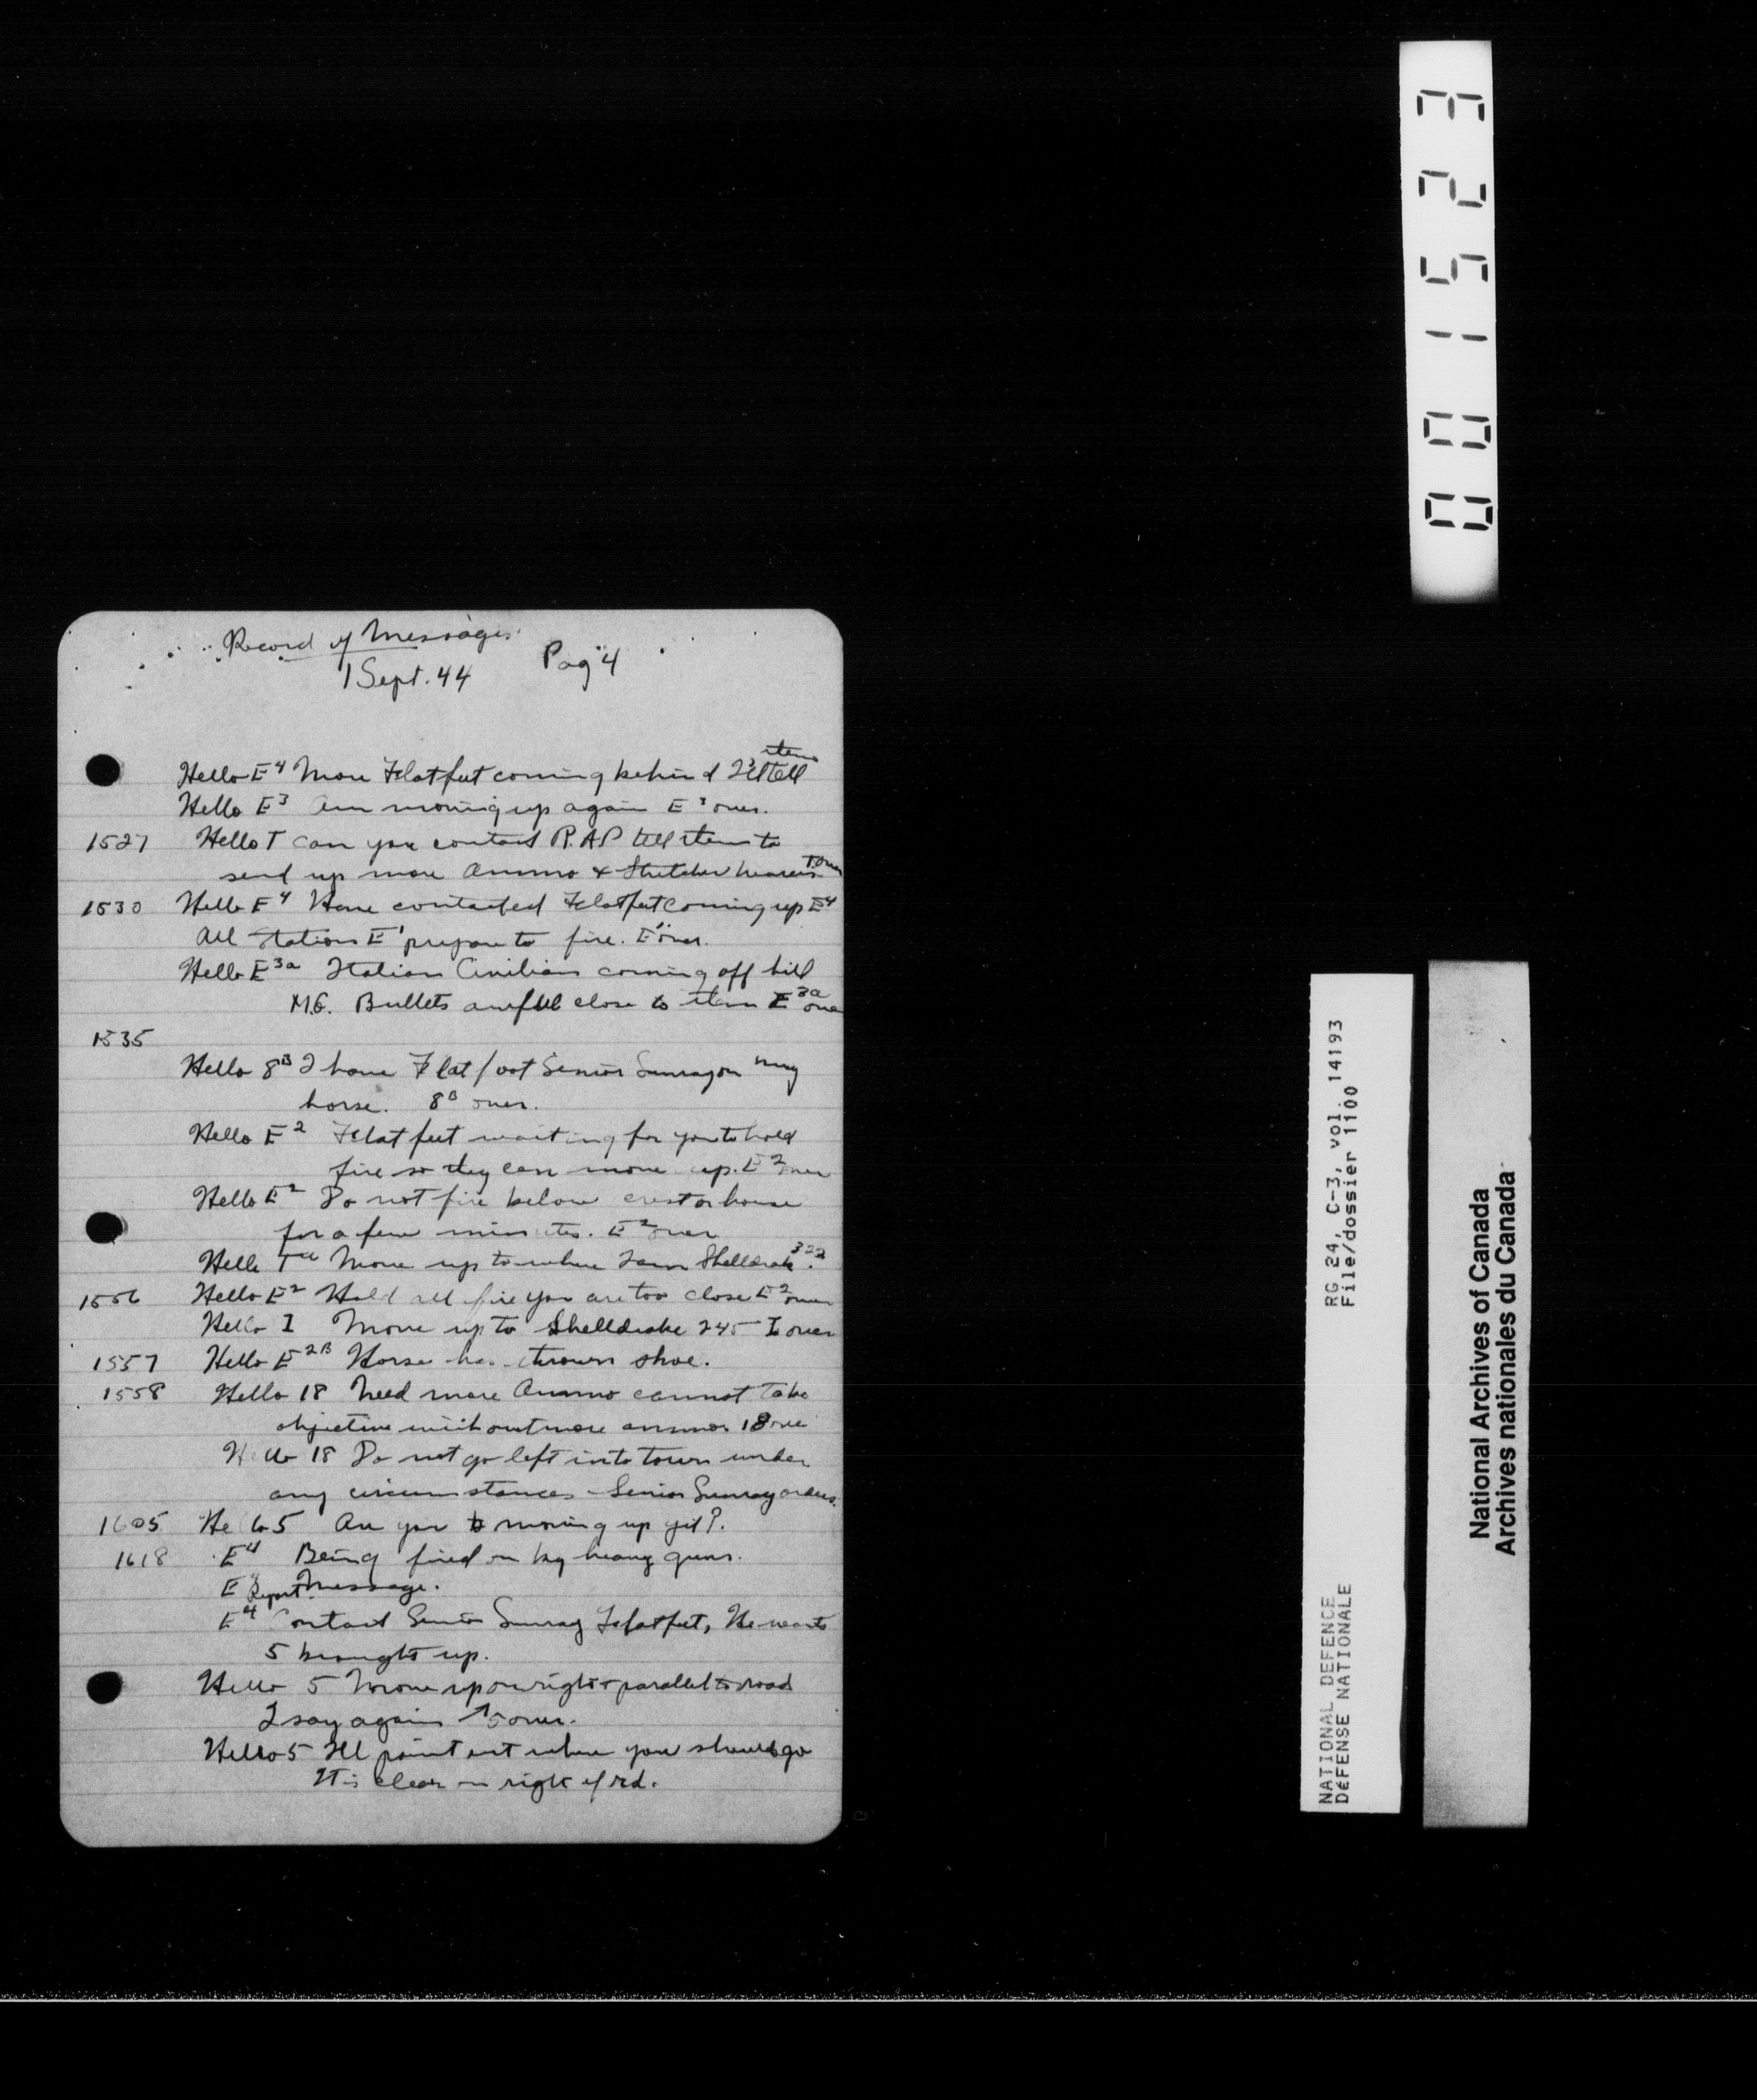 Record of Messages
1 Sept. 44 Pag 4
Hello E4 More Flatfeet coming behind I'll tell them
Hello E3 Am moving up again E3 over.
1527 Hello T can you contact R.A.P tell them to
send up more Ammo & Stretcher bearers T over
1530 Hello E4 Have contacted Flatfeet coming up E4
All Stations E prepare to fire. E over.
Hello E3a Italian Civilians coming off hill
M.G. Bullets awful close to them E3a over
1535
Hello 8B I have Flatfoot Senior Sunray on my
horse. 8B over.
Hello E2 Flatfeet waiting for you to hold
fire so they can move up. E2 over
Hello E2 Do not fire below crest or house
for a few minutes. E2 over
Hello Move up to where I am Shelldrake 322
1556 Hello E2 Hold all fire you are too close E2 over
Hello I Move up to Shelldrake 245 I over
1557 Hello E2B Horse has thrown shoe.
1558 Hello 18 Need more Ammo cannot take
objective without more ammo 18 over
Hello 18 Do not go left into town under
any circumstances - Senior Sunray orders.
1605 Hello 5 Are you moving up yet?.
1618 E4 Being fired on by heavy guns.
E Repeat Message.
E4 Contact Senior Sunray Flatfeet, He wants
5 brought up.
Hello 5 Move up on right & parallel to road
I say again 5 over.
Hello 5 I'll point out where you should go
It is clear on right of rd.
001523
RG 24, C-3, vol. 14193
File/dossier 1100
NATIONAL DEFENCE
DÉFENSE NATIONALE
National Archives of Canada
Archives nationales du Canada